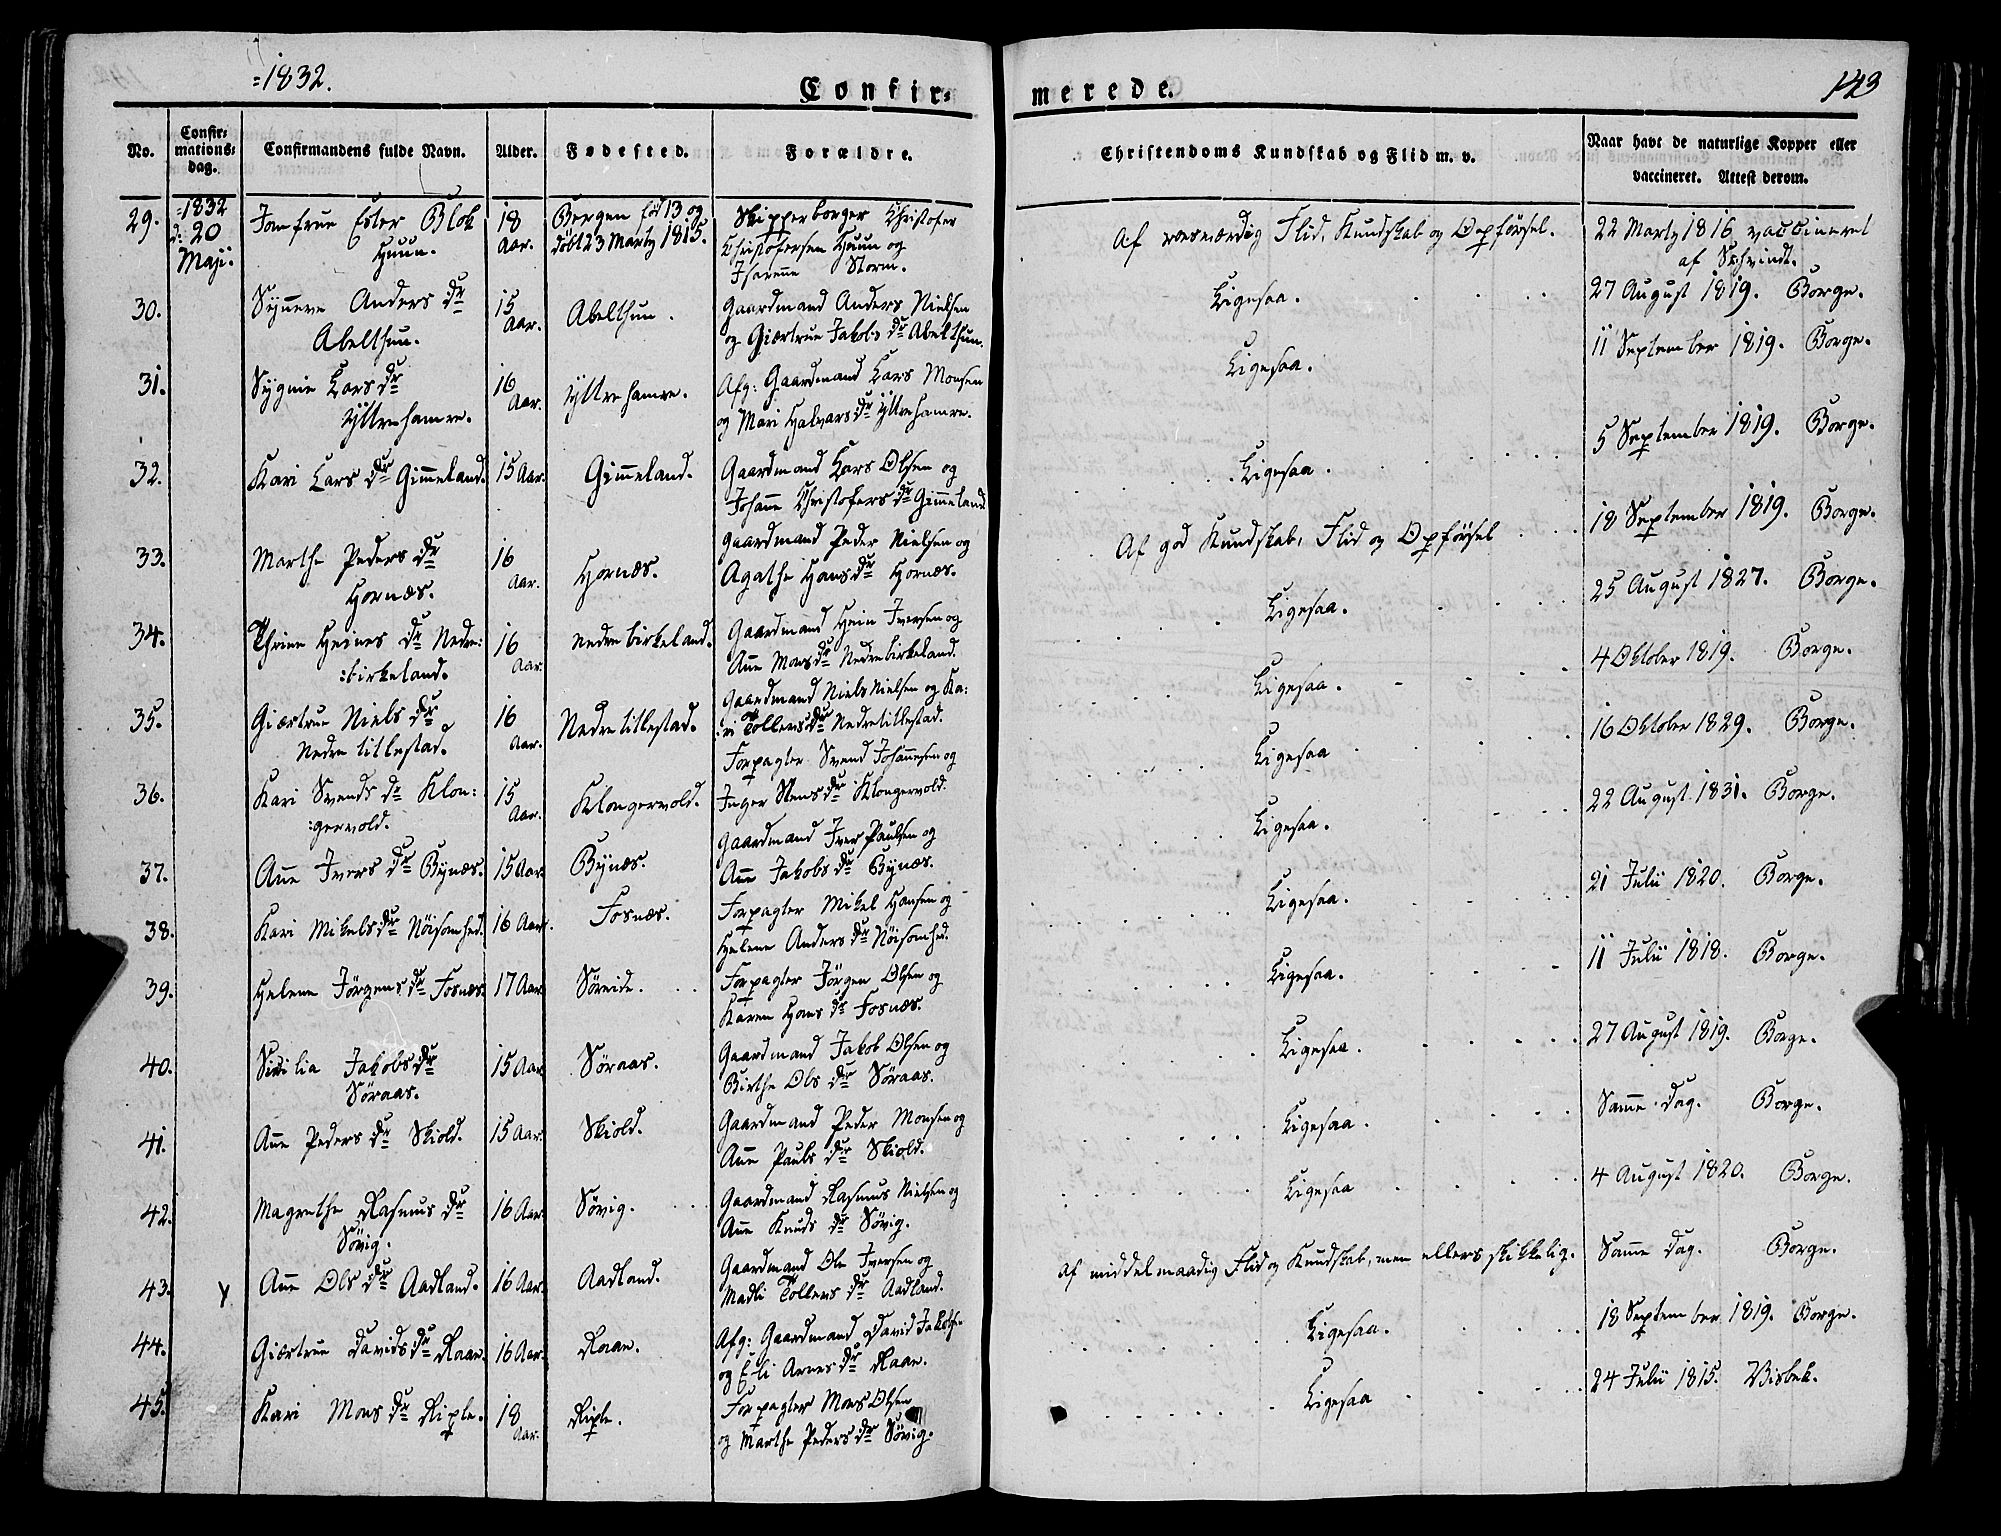 =1832.
Confir=
merede.
143
No.
Confir=
mations=
dag.
Confirmandens fulde Navn.
Alder.
Fødested.
Forældre.
Christendoms Kundskab og Flid m. v.
Naar havt de naturlige Kopper eller
vaccineret. Attest derom.
29.
=1832
d: 20
Maji.
Jomfrue Ester Blok
Huun.
18
Aar.
Bergen fød 13 og
døbt 23 Marty 1815.
Skipperborger Christofer
Christofersen Huun og
Storm.
Af roesværdig Flid, Kundskab og Opførsel.
22 Marty 1816 vaccineret
af Schvindt.
30.
Synneve Anders dr
Abelthun.
15
Aar.
Abelthun.
Gaardmand Anders Nielsen
og Giærtrue Jakobs dr Abelthun.
Ligesaa.
27 August 1819. Borge.
31.
Sygnie Lars dr
Yttrehamre.
16
Aar.
Yttrehamre.
Afg: Gaardmand Lars Monsen
og Mari Halvars dr Yttrehamre.
Ligesaa.
11 September 1819. Borge.
32.
Kari Lars dr Gimmeland.
15 Aar.
Gimmeland.
Gaardmand Lars Olsen og
Johanne Christofers dr Gimmeland
Ligesaa.
5 September 1819. Borge.
33.
Marthe Peders dr
Hornæs.
16
Aar.
Hornæs.
Gaardmand Peder Nielsen og
Agathe Hans dr Hornæs.
Af god Kundskab, Flid og Opførsel
18 September 1819. Borge.
34.
Thrine Heines dr Nedre:
:birkeland.
16
Aar.
Nedrebirkeland.
Gaardmand Hein Iversen og
Anne Mons dr Nedrebirkeland.
Ligesaa.
25 August 1827. Borge.
35.
Giærtrue Niels dr
Nedretitlestad.
16
Aar.
Nedretitlestad.
Gaardmand Niels Nielsen og Ka:
:ri Tollevs dr Nedretitlestad.
Ligesaa.
4 Oktober 1819. Borge.
36.
Kari Svends dr Klon:
:gervold.
15
Aar.
Klongervold.
Forpagter Svend Johannesen og
Inger Stens dr Klongervold.
Ligesaa
16 Oktober 1829. Borge.
37.
Anne Ivers dr Bynæs.
15 Aar.
Bynæs.
Gaardmand Iver Paulsen og
Anne Jakobs dr Bynæs.
Ligesaa.
22 August 1831. Borge.
38.
Kari Mikels dr Nöisomhed.
16 Aar.
Fosnæs.
Forpagter Mikel Hansen og
Helene Anders dr Nöisomhed.
Ligesaa.
21 Julii 1820. Borge.
39.
Helene Jørgens dr Fosnæs.
17 Aar.
Søreide.
Forpagter Jørgen Olsen og
Karen Hans dr Fosnæs.
Ligesaa.
11 Julii 1818. Borge.
40.
Sivilia Jakobs dr
Søraas.
15 Aar.
Søraas.
Gaardmand Jakob Olsen og
Birthe Ols dr Søraas.
Ligesaa.
27 August 1819. Borge.
41.
Anne Peders dr Skiold.
15 Aar.
Skiold.
Gaardmand Peder Monsen og
Anne Pauls dr Skiold.
Ligesaa.
Samme dag. Borge.
42.
Magrethe Rasmus dr
Søvig.
16 Aar.
Søvig.
Gaardmand Rasmus Nielsen og
Anne Knuds dr Søvig.
Ligesaa
4 August 1820. Borge.
43.
Y
Anne Ols dr Aadland.
16 Aar.
Aadland.
Gaardmand Ole Iversen og
Madli Tollevs dr Aadland.
Af middelmaadig Flid og Kundskab, men ellers skikkelig.
Samme dag. Borge.
44.
Giærtrue Davids dr Raae.
16 Aar.
Raae.
Afg: Gaardmand David Jakobs.
og Eli Arnes dr Raae.
Ligesaa.
18 September 1819. Borge.
45.
Kari Mons dr Riple.
18
Aar.
Riple.
Forpagter Mons Olsen
og Marthe Peders dr Søvig.
Ligesaa
24 Julii 1815. Visbek.